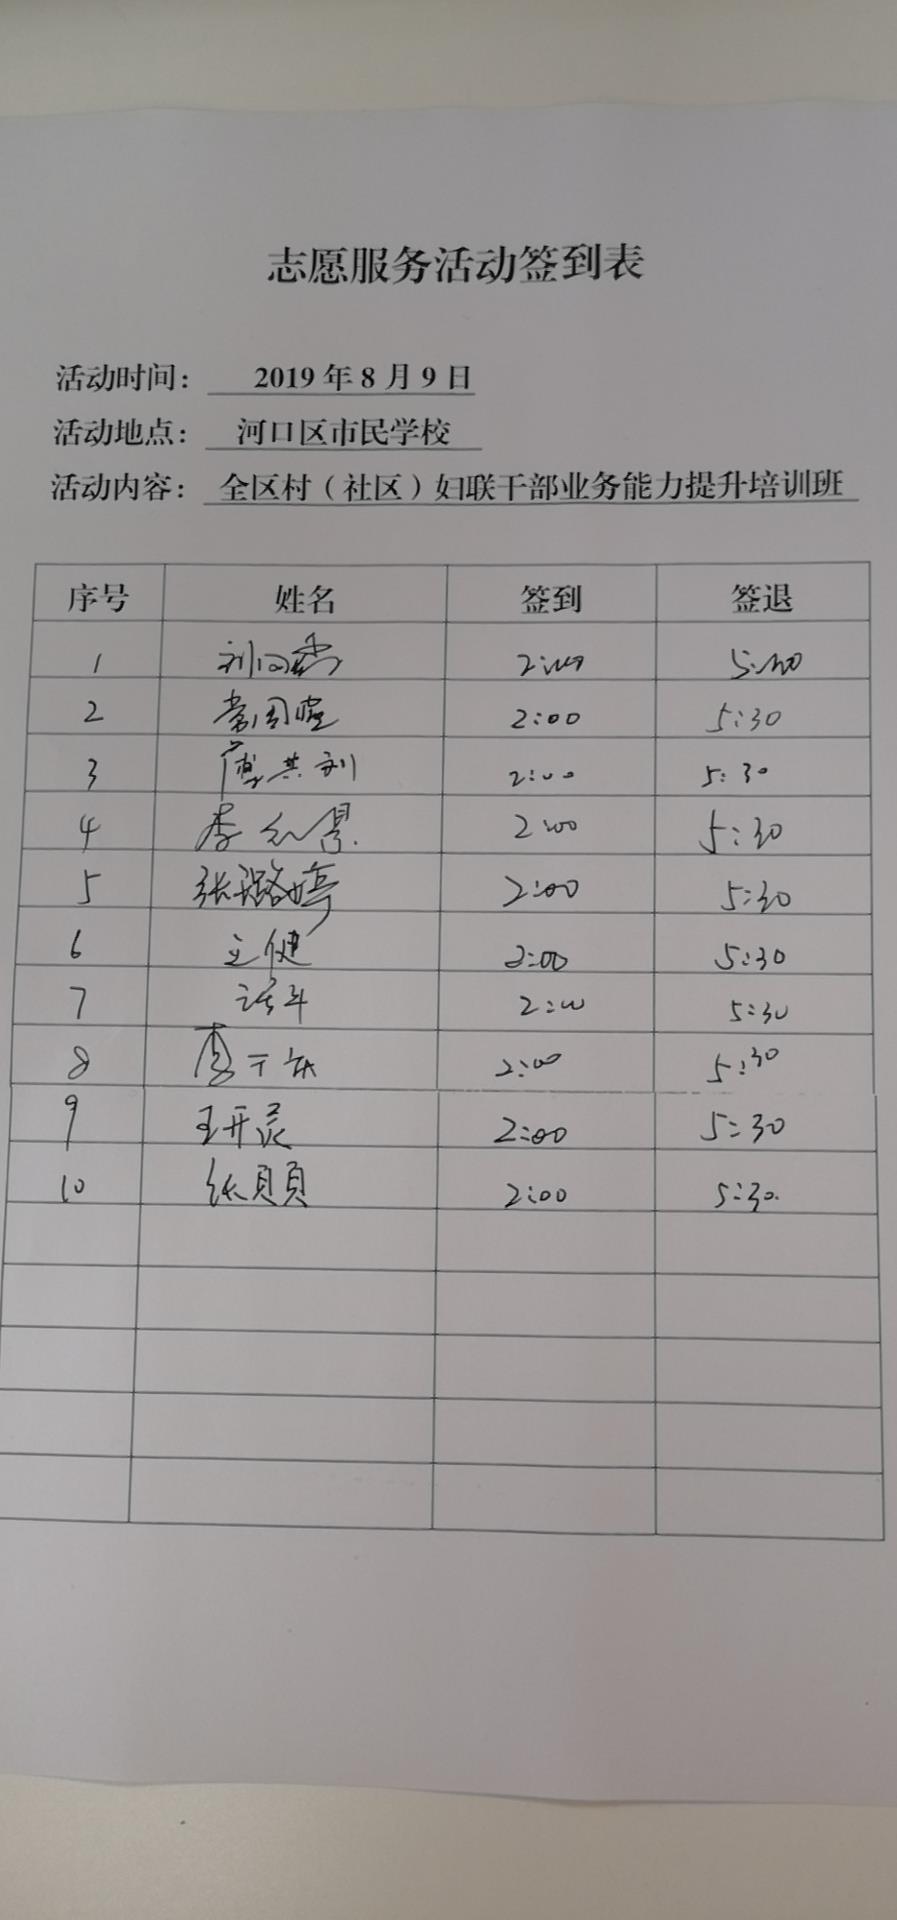 志愿服务活动签到表
活动时间： 2019 年 8 月 9 日
活动地点： 河口区市民学校
活动内容： 全区村（社区）妇联干部业务能力提升培训班
序号 姓名 签到 签退
1 2:00 5:30
2 2:00 5:30
3 薄其利 2:00 5:30
4 李 2:00 5:30
5 张璐婷 2:00 5:30
6 王健 2:00 5:30
7 2:00 5:30
8 2:00 5:30
9 王开灵 2:00 5:30
10 张贝贝 2:00 5:30